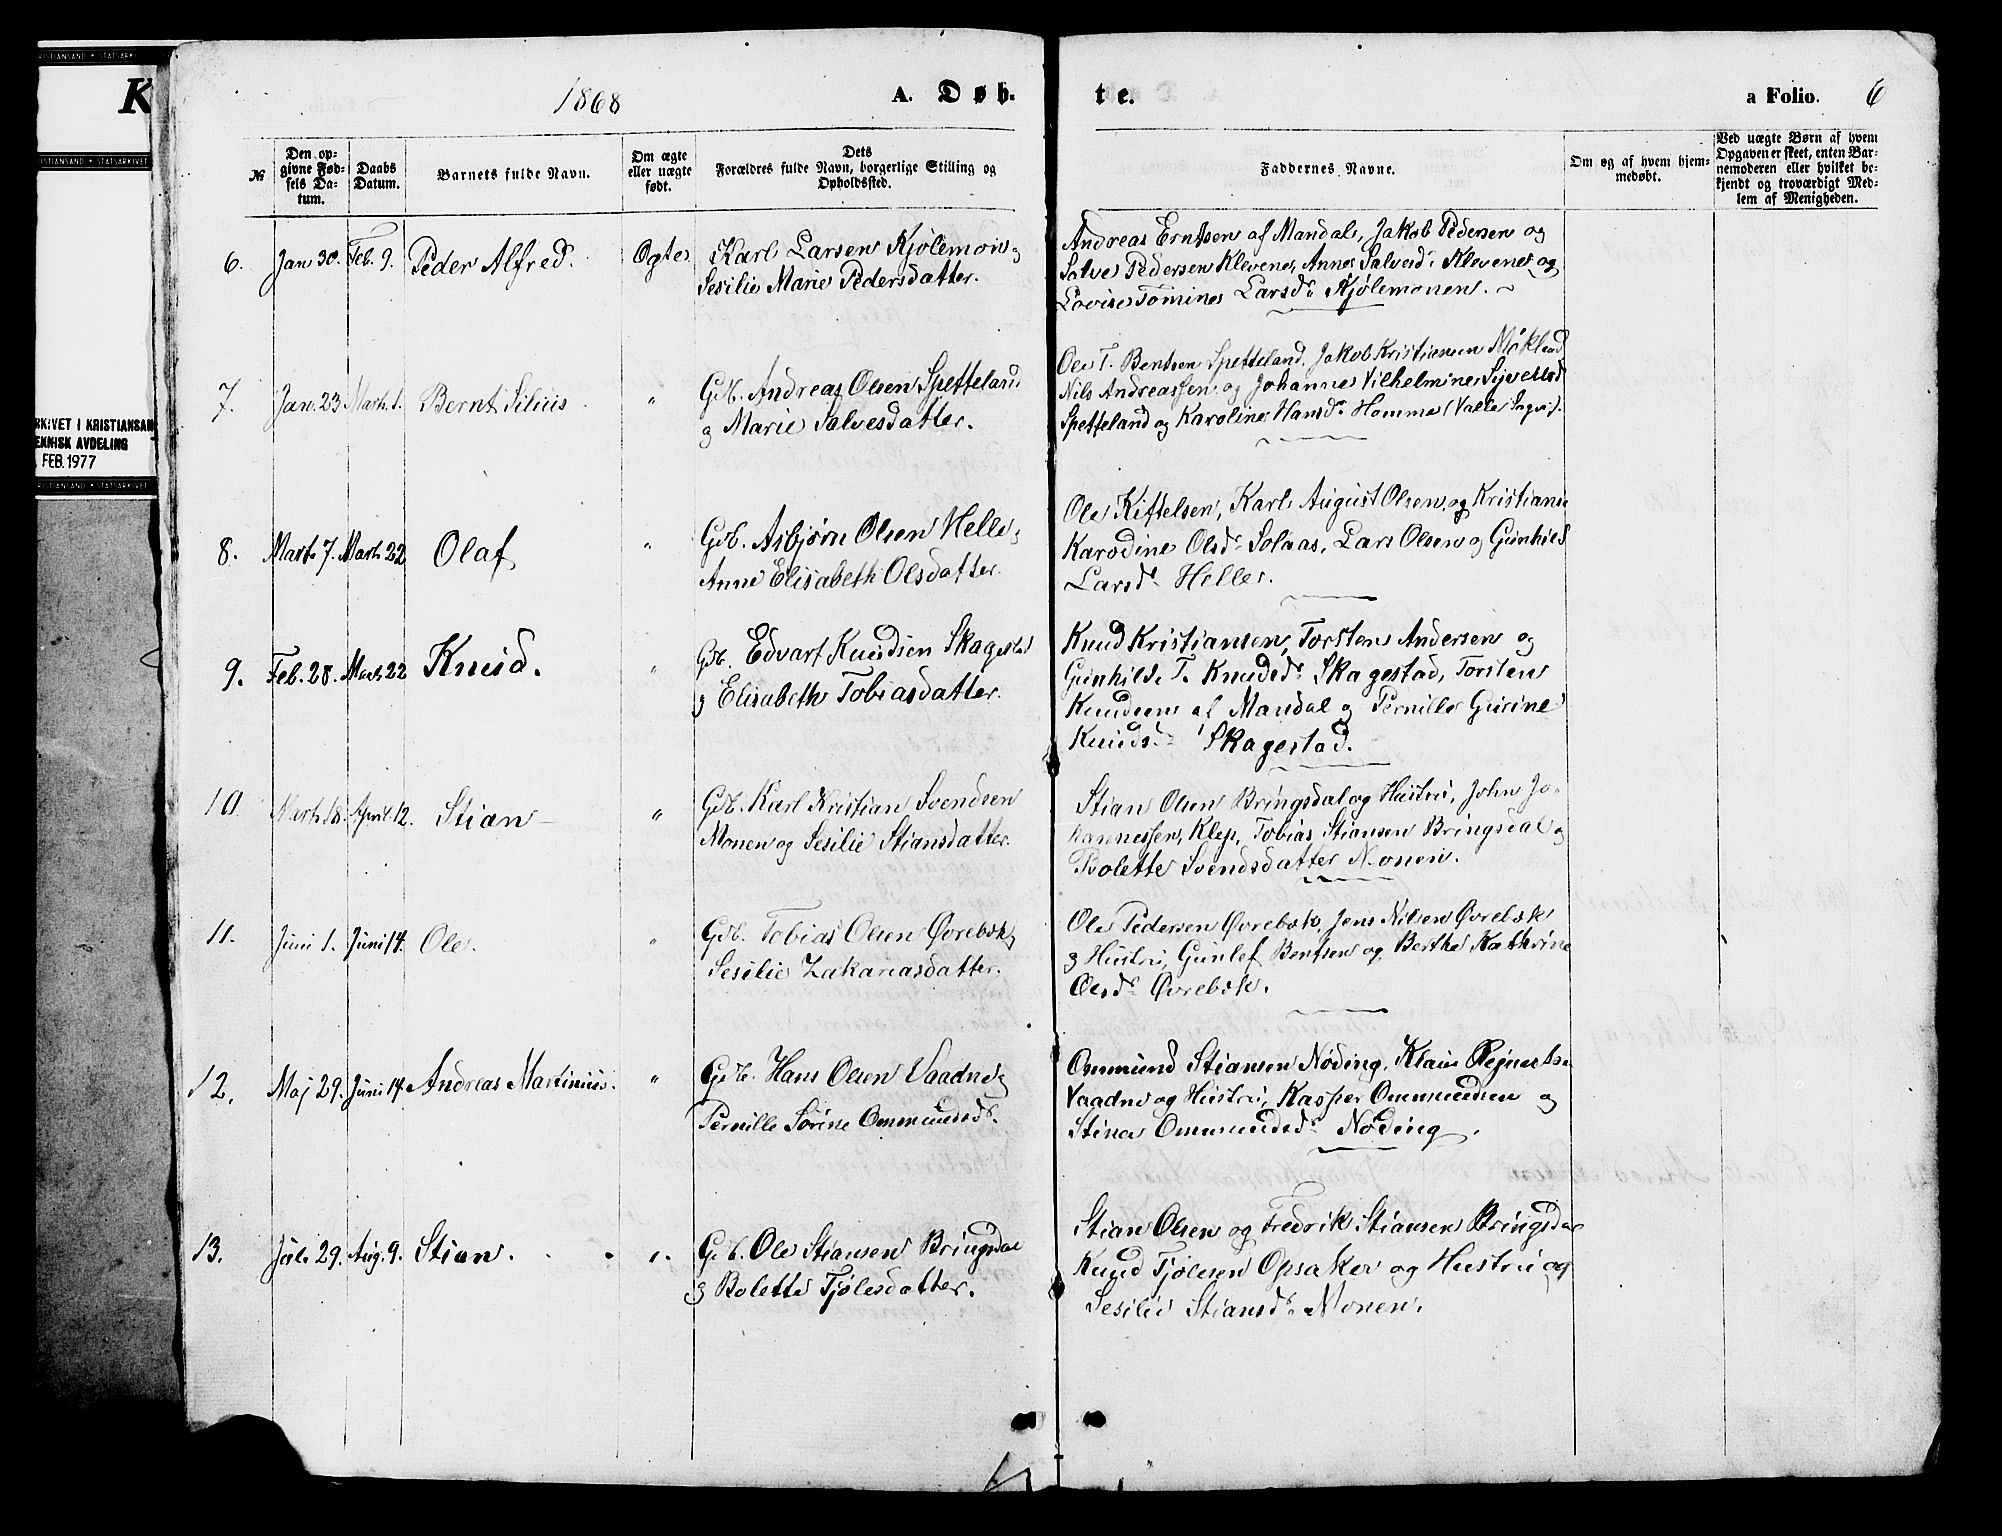 1868
A. Døb-
te.
a Folio. 6
№
Den op-
givne Fød-
sels Da-
tum.
Daabs
Datum.
Barnets fulde Navn.
Om ægte
eller uægte
født.
Dets
Forældres fulde Navn, borgerlige Stilling og
Opholdssted.
Faddernes Navne.
Om og af hvem hjem-
medøbt.
Ved uægte Børn af hvem
Opgaven er skeet, enten Bar-
nemoderen eller hvilket be-
kjendt og troværdigt Med-
lem af Menigheden.
6. Jan 30. Feb. 9. Peder Alfred. Ægte Karl Larsen Kjølemon og
Sesilie Marie Pedersdatter.
Andreas Erntsen af Mandal, Jakob Pedersen og
Salve Pedersen Klevene, Anne Salvesd. Klevene og
Lovise Tomine Larsd. Kjølemonen.
7. Jan. 23 Marts 1. Bernt Silius " Gdb. Andreas Olsen Spetteland
og Marie Salvesdatter.
Ole T. Bentsen Spetteland, Jakob Kristiansen
Nils Andreassen og Johanne Vilhelmine
Spetteland og Karoline Hansd. Homme (Valle Sogn).
8. Marts 7. Marts 22 Olaf " Gdb. Asbjørn Olsen Helle og
Anne Elisabeth Olsdatter.
Ole Kittelsen, Karl August Olsen og Kristiane
Karodine Olsd. Solaas, Lars Olsen og Gunhild
Larsd. Helle.
9. Feb. 28. Marts 22 Knud. " Gdb. Edvart Knudsen Skagestad
og Elisabeth Tobiasdatter.
Knud Kristiansen, Torsten Andersen og
Gunhild T. Knudsd. Skagestad, Torsten
Knudsen af Mandal og Pernille Gurine
Knudsd. Skagestad.
10 Marts 18. April 12. Stian " Gdb. Karl Kristian Svendsen
Monen og Sesilie Stiansdatter.
Stian Olsen Bringsdal og Hustru, John Jo-
hannessen, Klep, Tobias Stiansen Bringsdal og
Bolette Svendsdatter Monen.
11. Juni 1. Juni 14. Ole. " Gdb. Tobias Olsen Øvrebøk og
Sesilie Zakariasdatter.
Ole Pedersen Øvrebøk, Jens Nilsen Øvrebøk
og Hustru, Gunlef Bentsen og Berthe Kathrine
Olsd. Øvrebøk.
12. Maj 29. Juni 14. Andreas Martinius. " Gdb. Hans Olsen Vaadne og
Pernille Sørine Ommundsd.
Ommund Stiansen Nøding, Klaus
Vaadne og Hustru, Kasper Ommundsen og
Stine Ommundsd. Nøding.
13. Juli 29. Aug. 9. Stian. " Gdb. Ole Stiansen Bringsdal
og Bolette Tjølesdatter.
Stian Olsen og Fredrik Stiansen Bringsdal
Knud Tjølesen Opsaker og Hustru og
Sesilie Stiansd. Monen.
K
RKIVET I KRISTIANSAN
EKNISK AVDELING
FEB. 1977